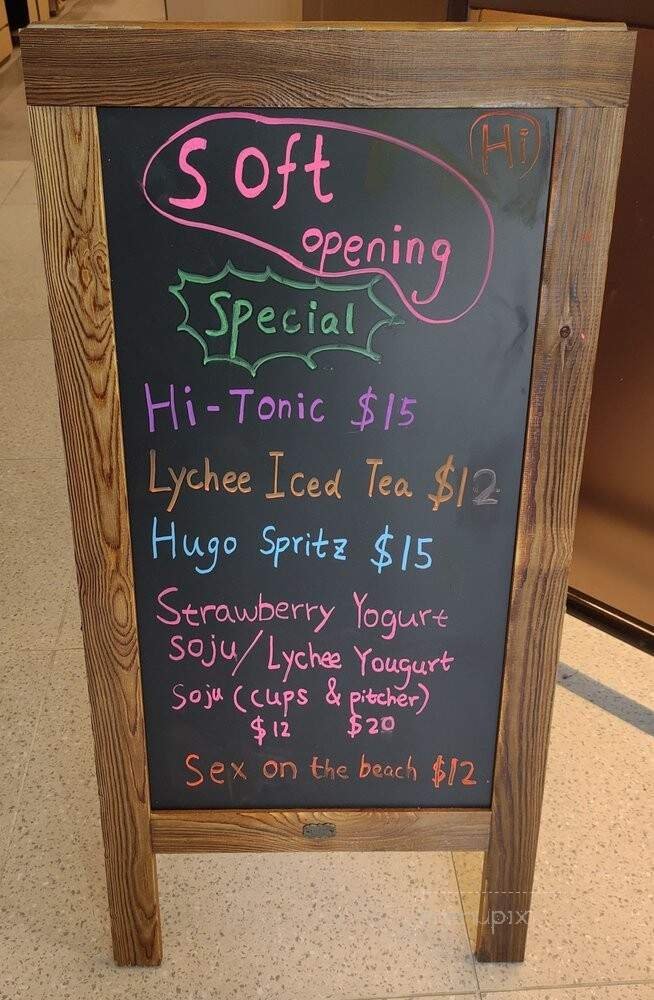 Soft
Hi
opening
Special
Hi-Tonic $15
Lychee Iced Tea $12
Hugo Spritz $15
Strawberry Yogurt
Soju/Lychee Yougurt
Soju (cups & pitcher)
$12 $20
Sex on the beach $12